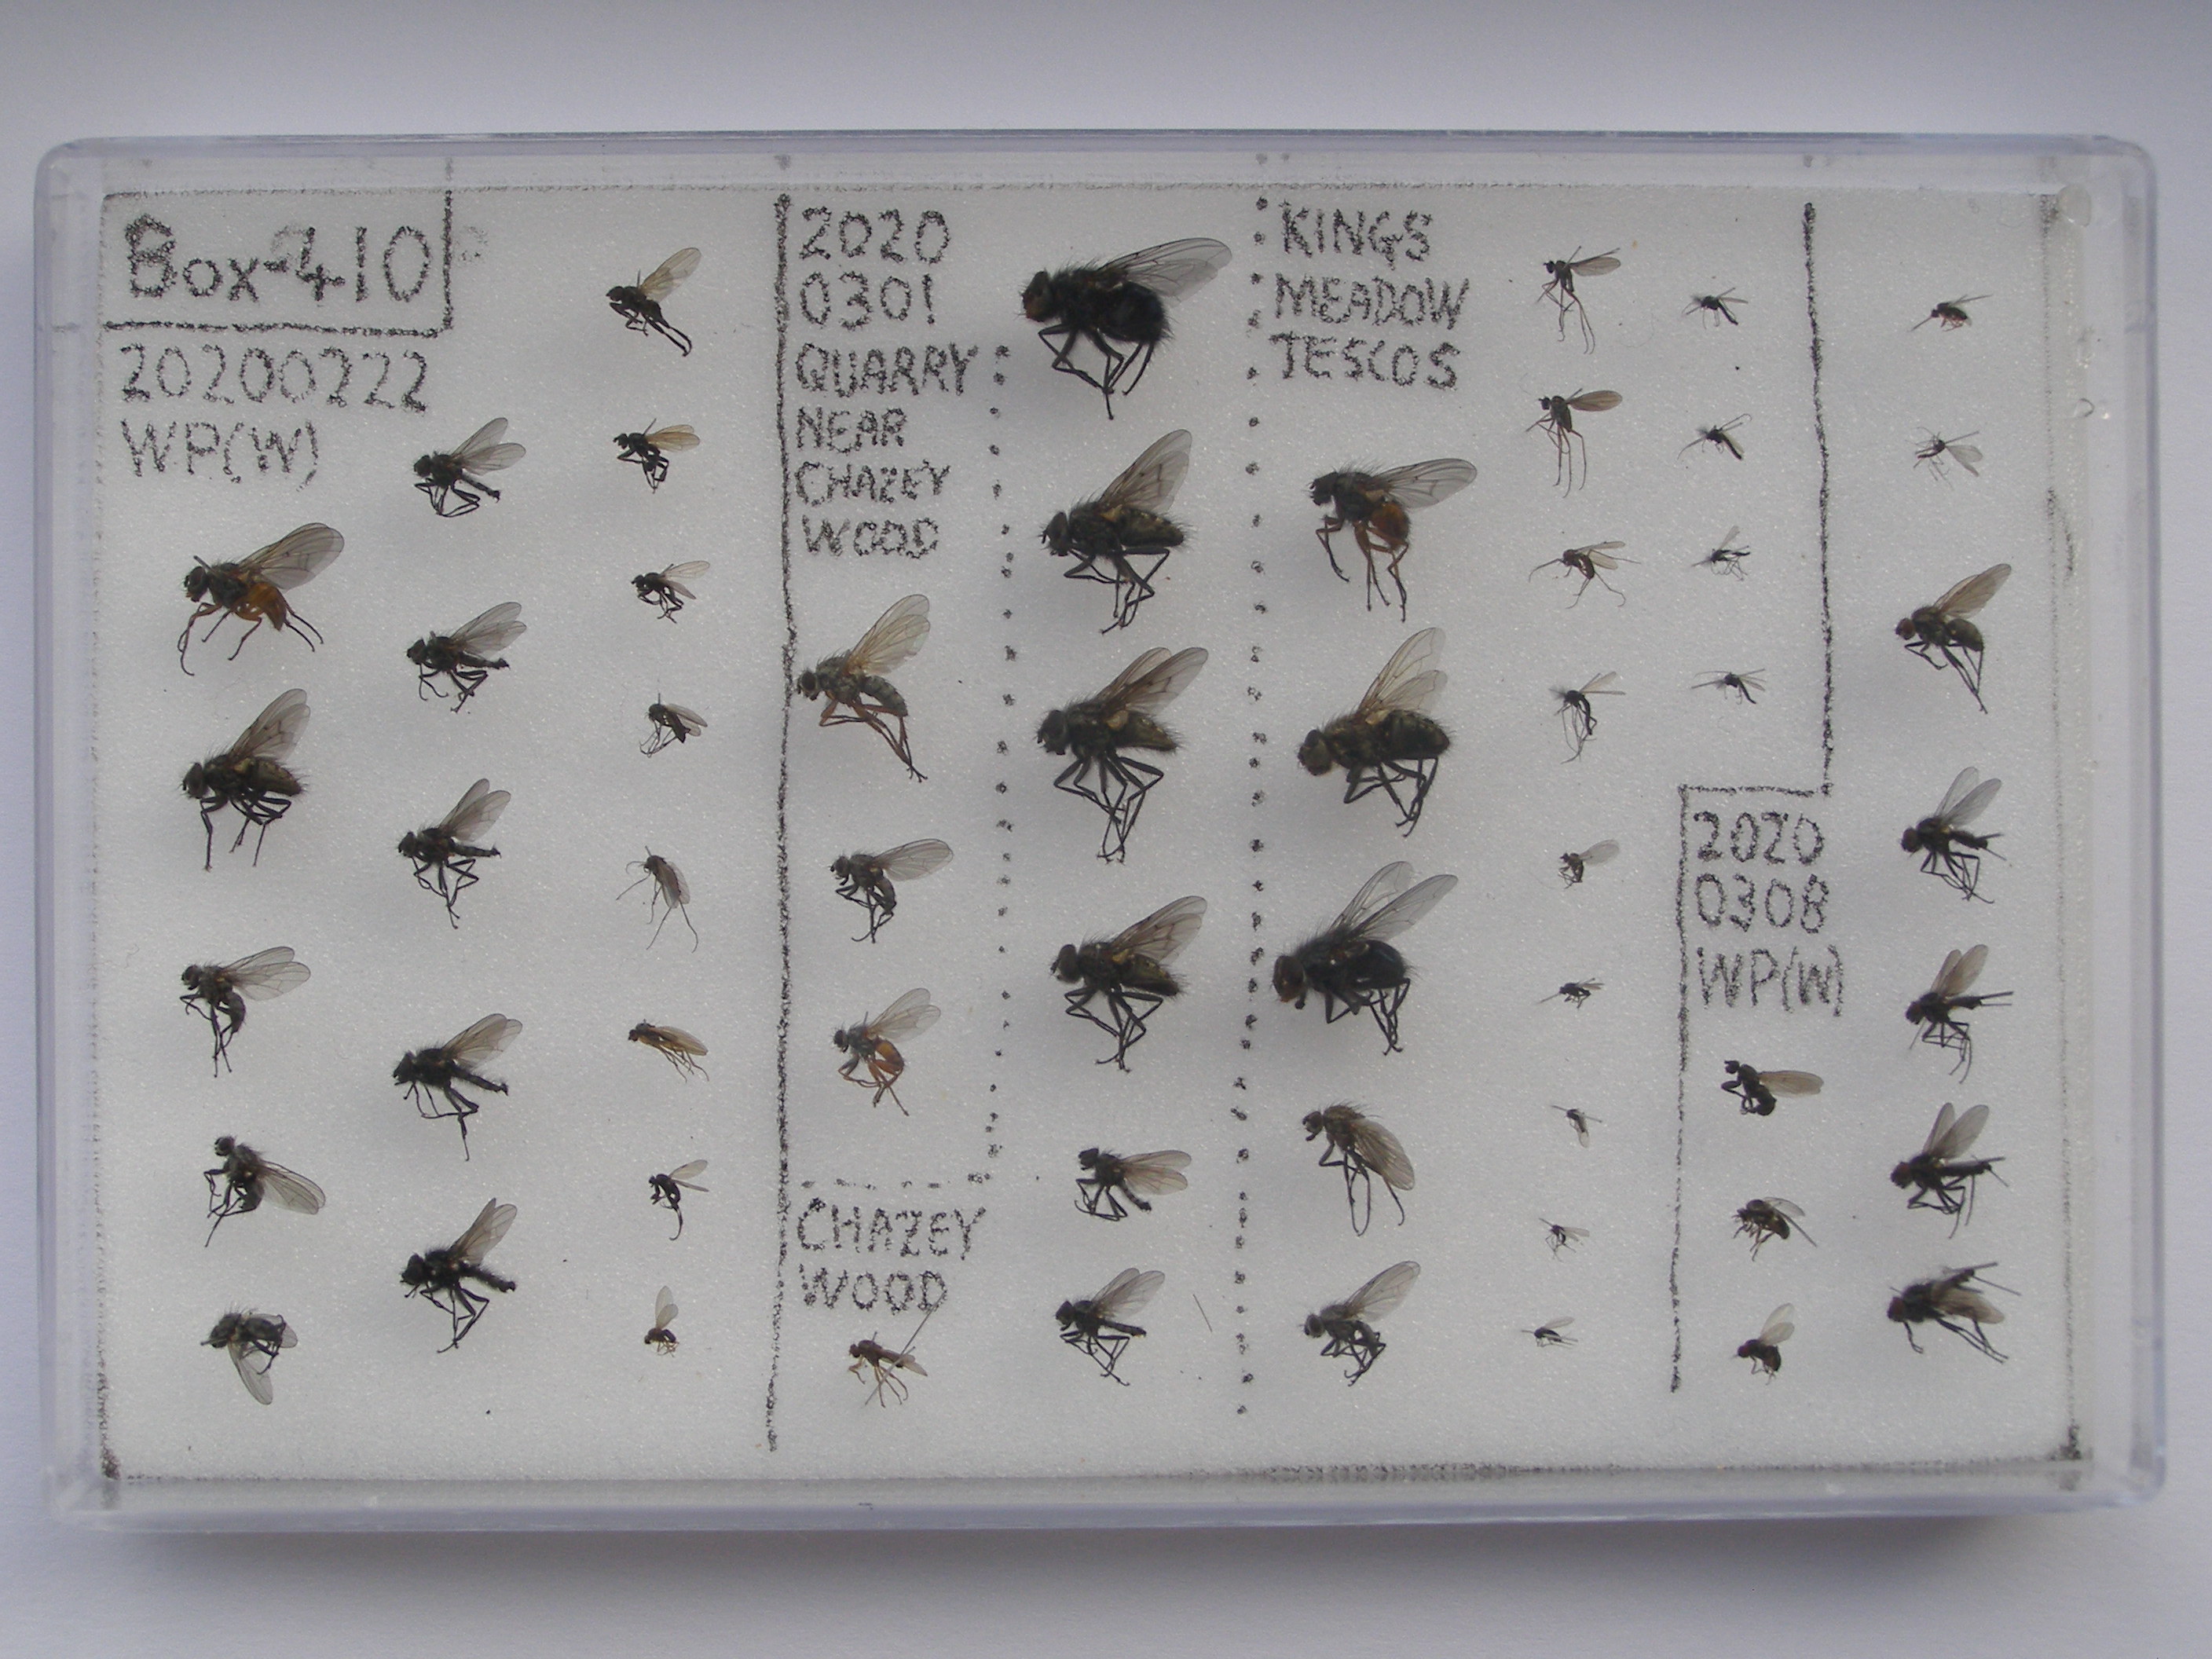 Box-410
20200222
WP(W)
2020
0301
QUARRY
NEAR
CHAZEY
WOOD
CHAZEY
WOOD
KINGS
MEADOW
TESCOS
2020
0308
WP(W)